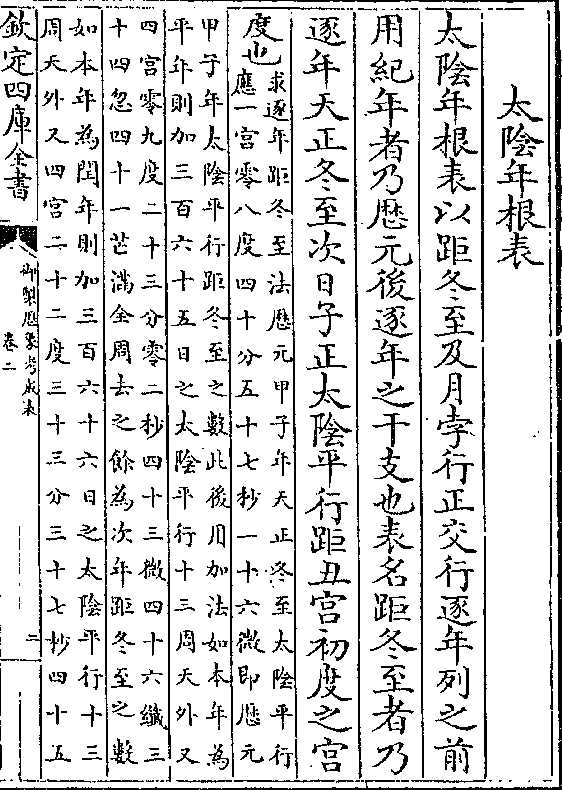 太陰年根表
太陰年根表以距冬至及月孛行正交行逐年列之前
用紀年者乃厯元後逐年之干支也表名距冬至者乃
逐年天正冬至次日子正太陰平行距丑宫初度之宫
度也
求逐年距冬至法厯元甲子年天正冬至太陰平行
應一宫零八度四十分五十七秒一十六微即厯元
甲子年太陰平行距冬至之數此後用加法如本年為
平年則加三百六十五日之太陰平行十三周天外又
四宫零九度二十三分零二秒四十三微四十六纖三
十四忽四十一芒滿全周去之餘為次年距冬至之數
如本年為閏年則加三百六十六日之太陰平行十三
周天外又四宫二十二度三十三分三十七秒四十五
欽定四庫全書
御製厯象考成表
卷二
二